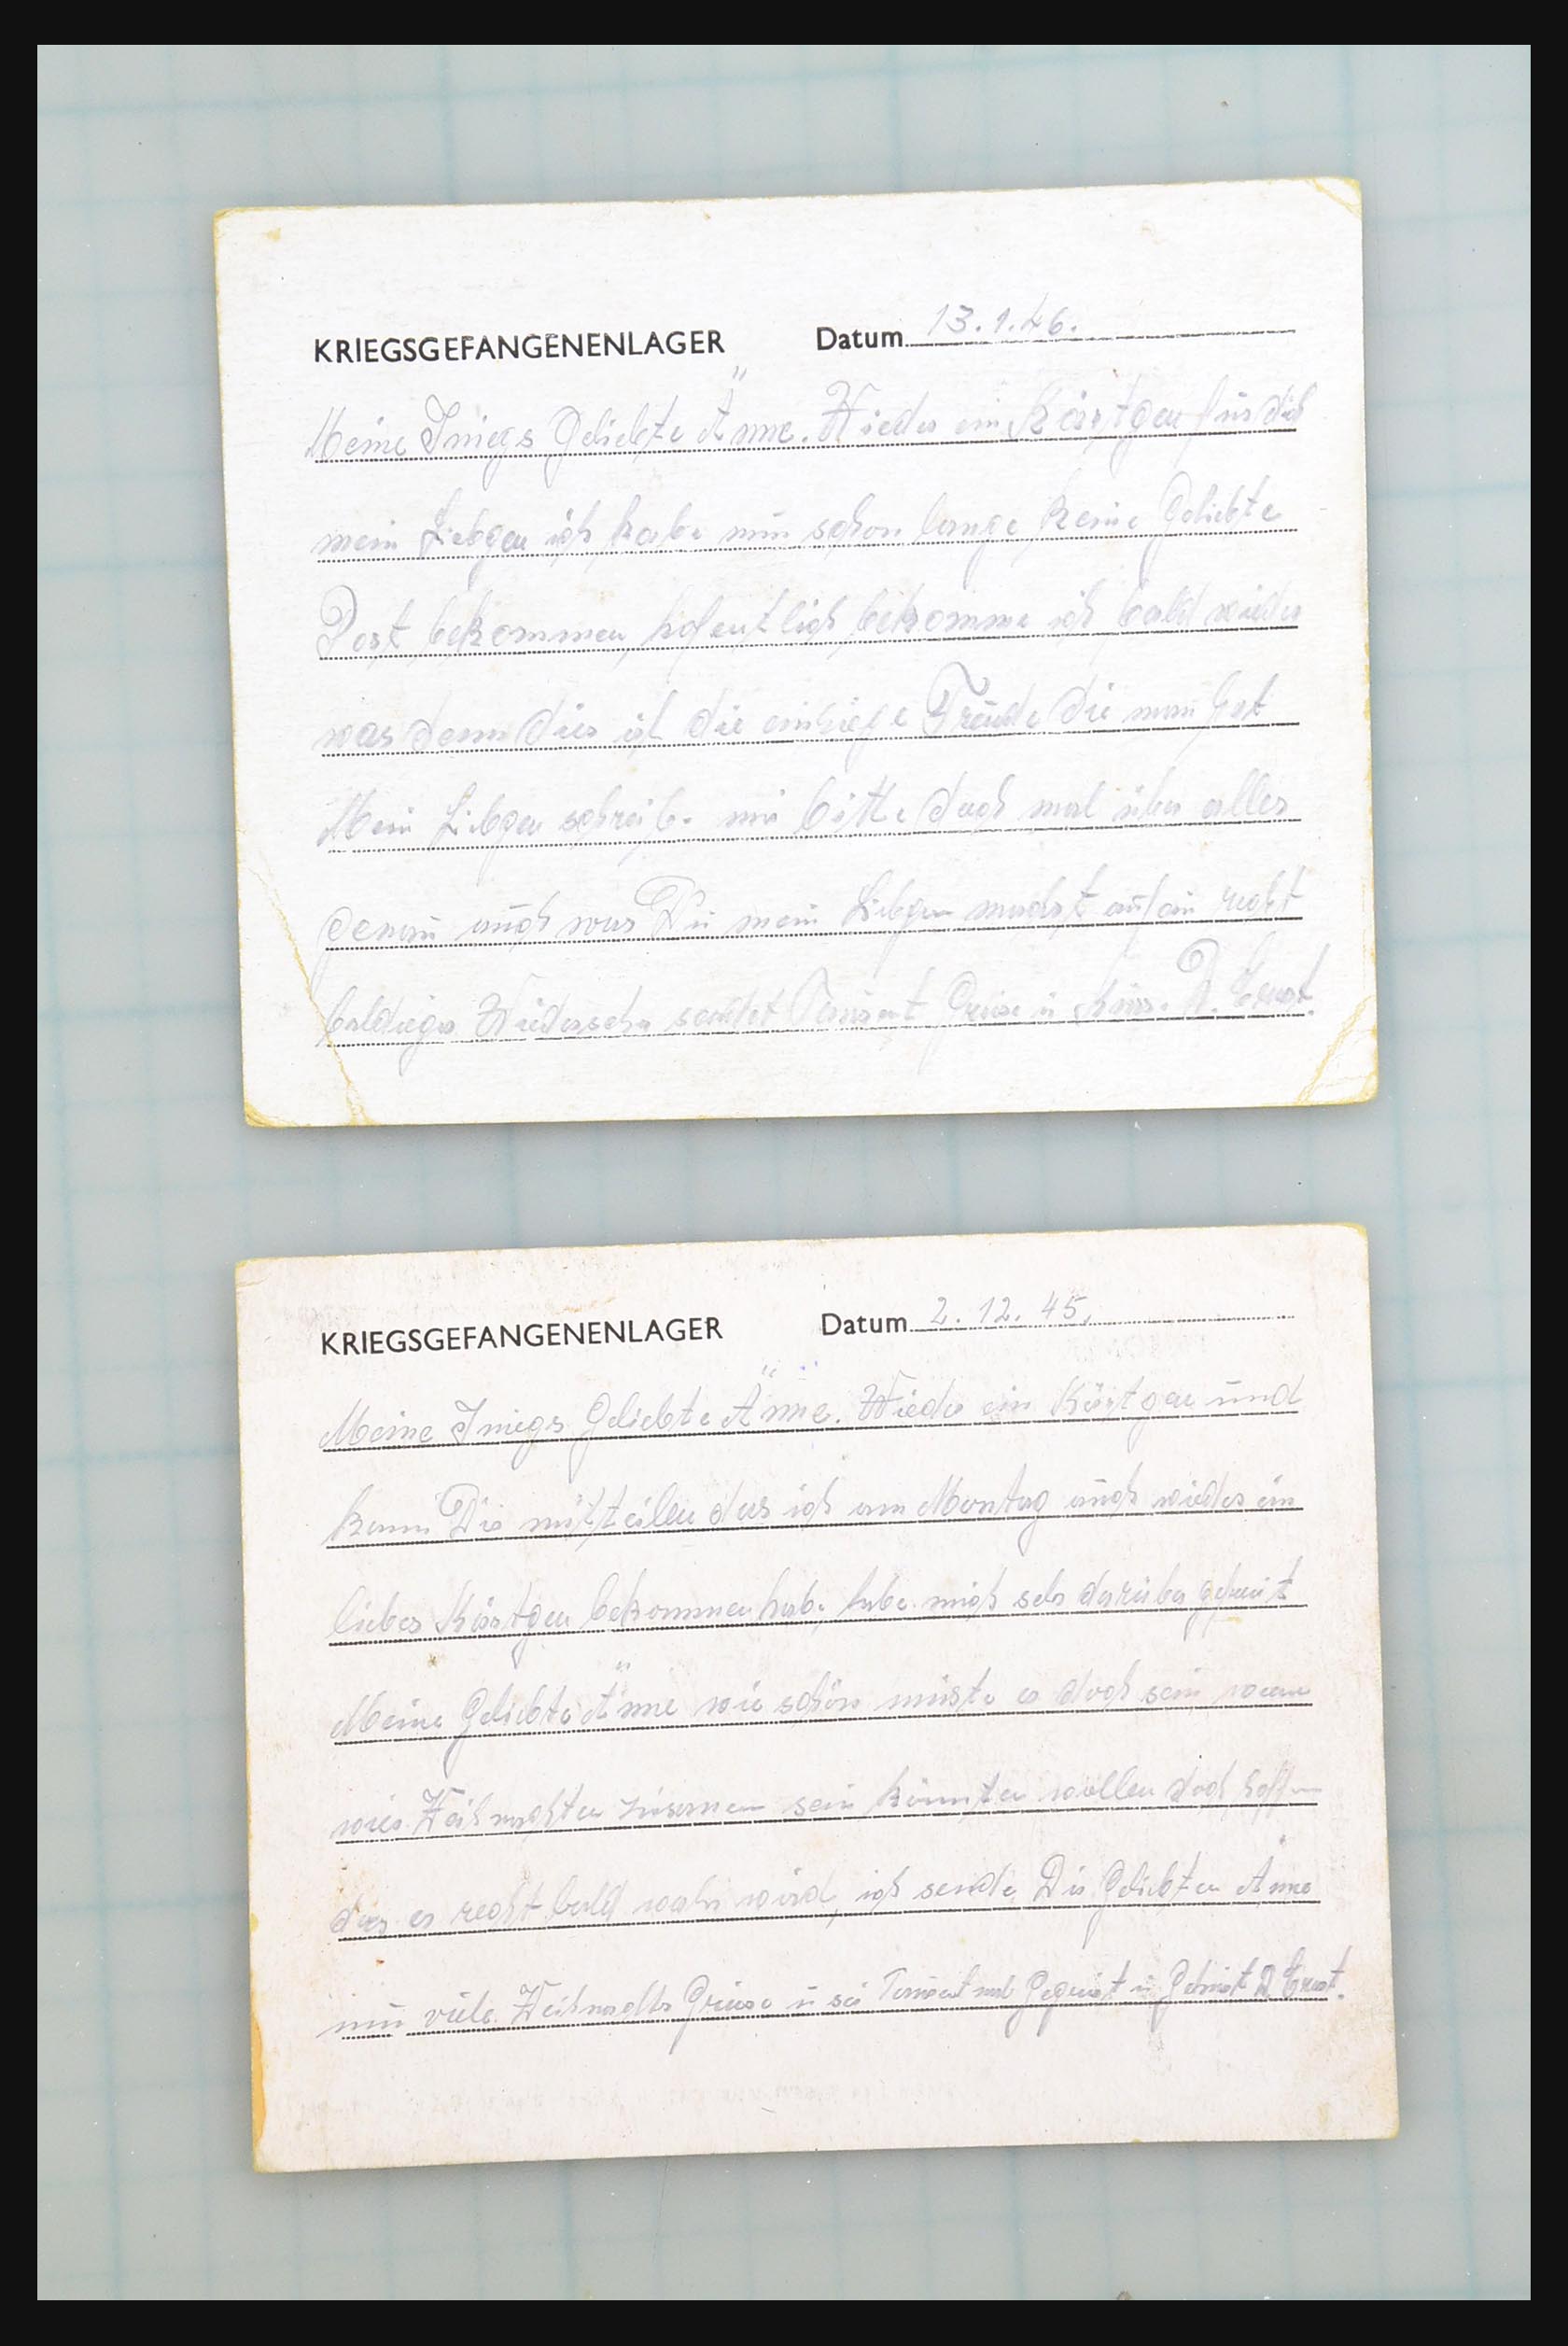 KRIEGSGEFANGENENLAGER Datum 13.1.46.
Meine Iniegs Geliebte Änne. Wieder ein Kärtgen für dich
mein Liebgen ich habe nun schon lange keine Geliebte
Post bekommen, hofentlich bekomme ich bald wieder
was denn dies ist die einziege Freude die man hat
Mein Liebgen schreibe mir bitte doch mal über alles
genau auch was Du mein Liebgen machst auf ein recht
baldieges Wiedersehn sendet Tausent Grüse u Küsse D. Ernst.
KRIEGSGEFANGENENLAGER Datum 2. 12. 45.
Meine Iniegs Geliebte Änne. Wieder ein Kärtgen und
kann Dir mitteilen das ich am Montag auch wieder ein
liebes Kärtgen bekommen habe habe mich sehr darüber gefreut
Meine Geliebte Änne wie schön müste es doch sein wenn
wir Weihnachten zusamen sein könnten wollen doch hoffen
das es recht bald wahr wird, ich sende Dir Geliebten Änne
nun viele Weihnachts Grüse u sei Tausent mal Gegrüst u Geküst D. Ernst.